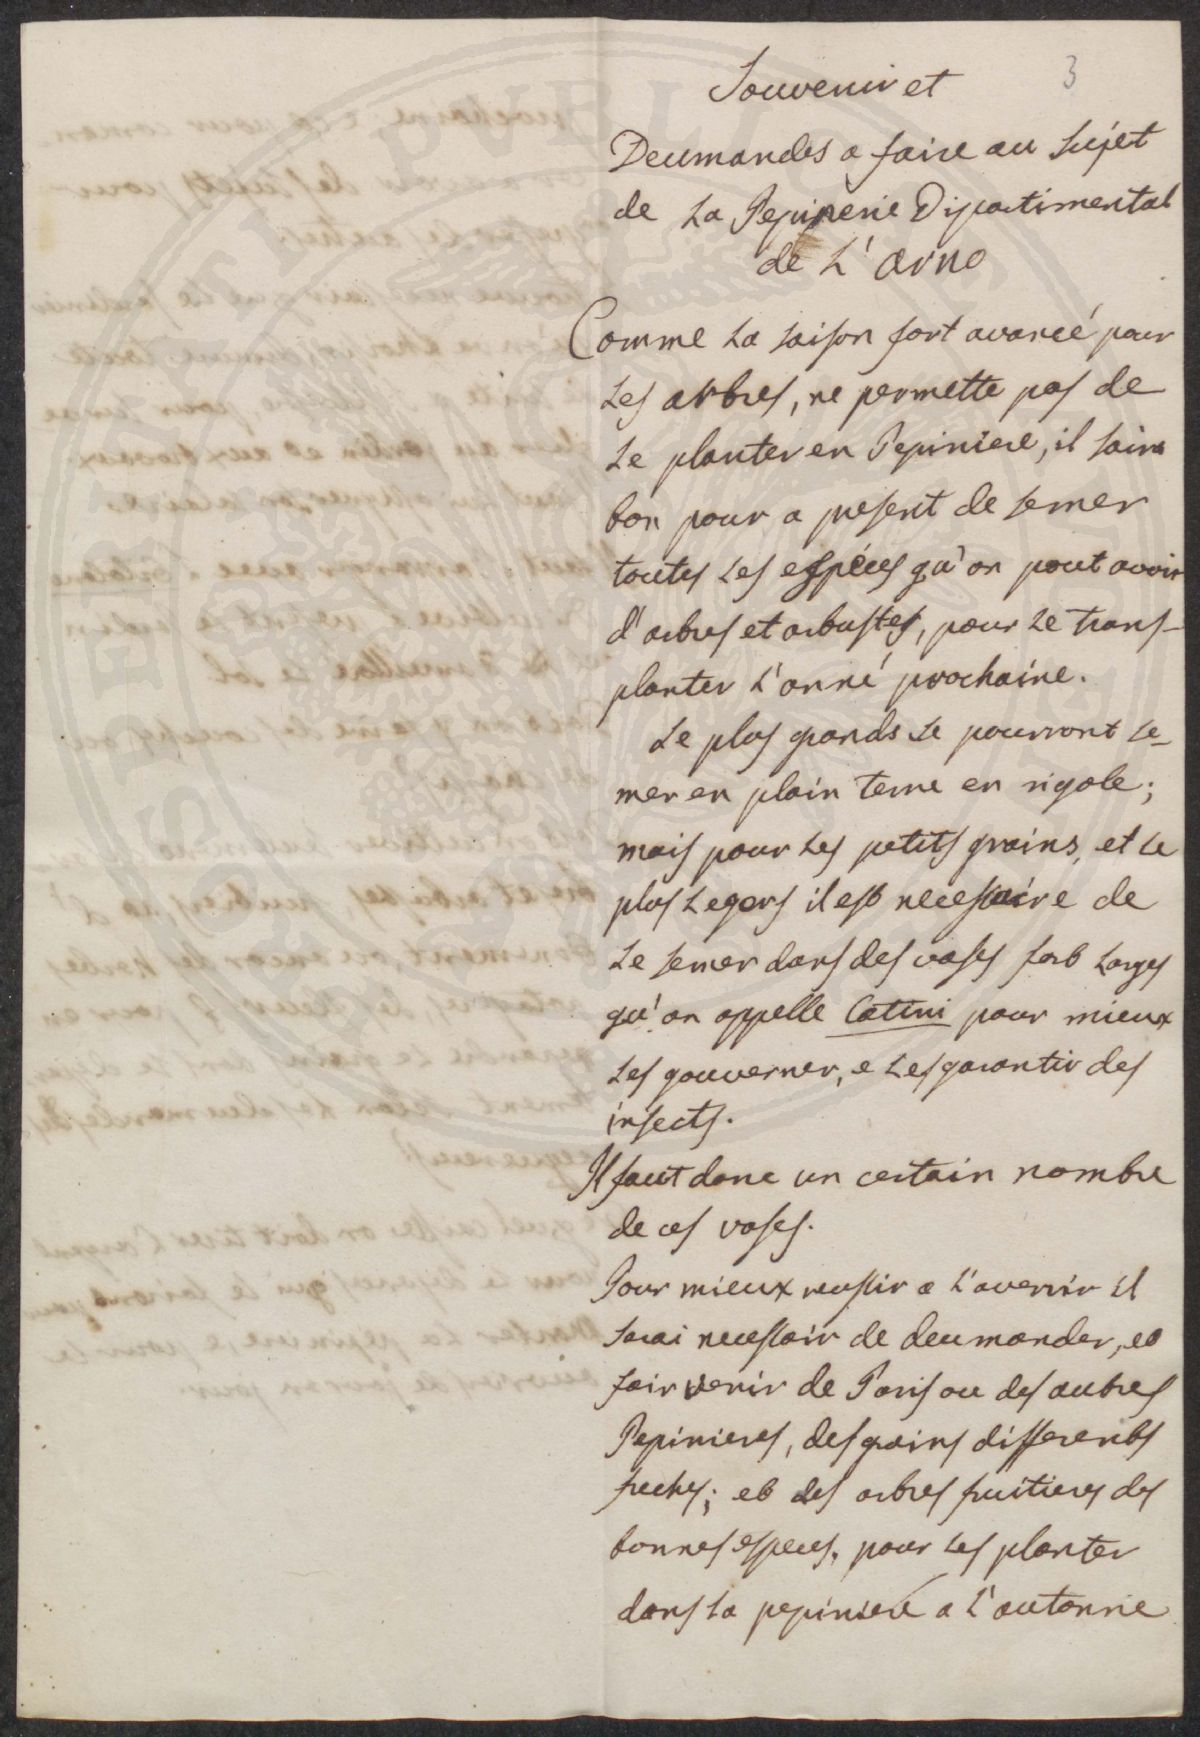 3
Souvenir et
Deumandes a faire au sujet
de La Pepinerie Dipartimental
de L'arno
Comme La saison fort avancé pour
Les arbres, ne permette pas de
Le planter en Pepiniere, il saira
bon pour a present de semer
toutes Les espéces qu'on pout avoir
d'arbres et arbustes, pour Le trans-
planter L'anné prochaine.
Le plus grands se pourront se-
mer en plain terre en rigole;
mais pour Les petits grains, et Le
plus Legers il est necessaire de
Le semer dans des vases fort Larges
qu'on appelle Catini pour mieux
Les gouverner, e Les garantir des
insects.
Il faut donc un certain nombre
de ces vases.
Pour mieux reussir a L'avenir il
sarai necessair de deumander, et
fair venir de Paris ou des autres
Pepinieres, des grains differents
freches; et des arbres fruitieres des
bonnes especes, pour Les planter
dans La pepiniere a L'autonne